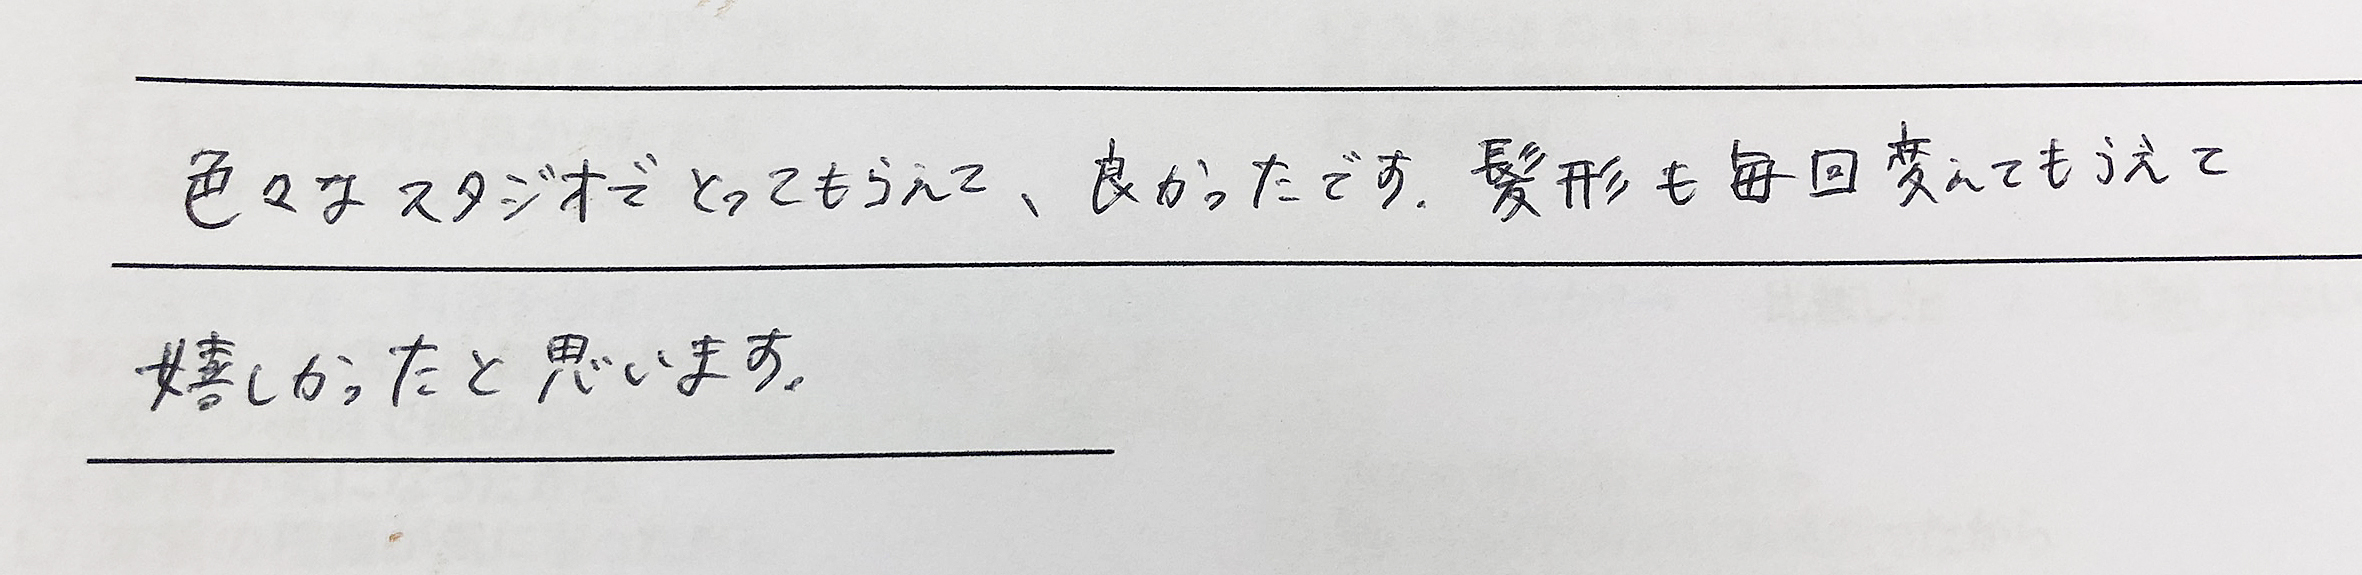 色々なスタジオでとってもらえて、良かったです。髪形も毎回変えてもらえて
嬉しかったと思います。